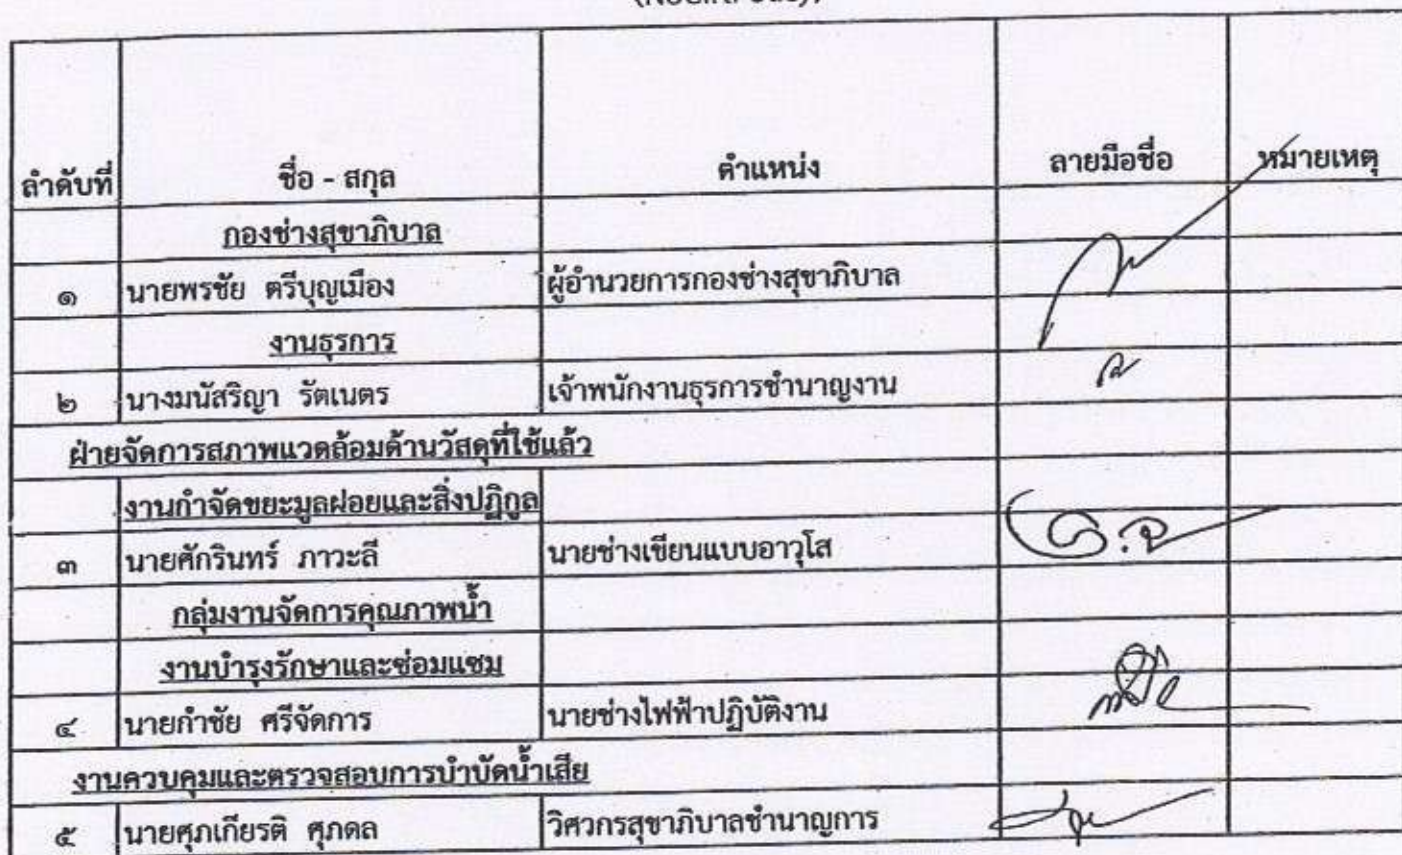 ลำดับที่ ชื่อ - สกุล ตำแหน่ง ลายมือชื่อ หมายเหตุ
กองช่างสุขาภิบาล
๑ นายพรชัย ตรีบุญเมือง ผู้อำนวยการกองช่างสุขาภิบาล
งานธุรการ
๒ นางมนัสริญา รัตเนตร เจ้าพนักงานธุรการชำนาญงาน
ฝ่ายจัดการสภาพแวดล้อมด้านวัสดุที่ใช้แล้ว
งานกำจัดขยะมูลฝอยและสิ่งปฏิกูล
๓ นายศักรินทร์ ภาวะลี นายช่างเขียนแบบอาวุโส
กลุ่มงานจัดการคุณภาพน้ำ
งานบำรุงรักษาและซ่อมแซม
๔ นายกำชัย ศรีจัดการ นายช่างไฟฟ้าปฏิบัติงาน
งานควบคุมและตรวจสอบการบำบัดน้ำเสีย
๕ นายศุภเกียรติ ศุภดล วิศวกรสุขาภิบาลชำนาญการ